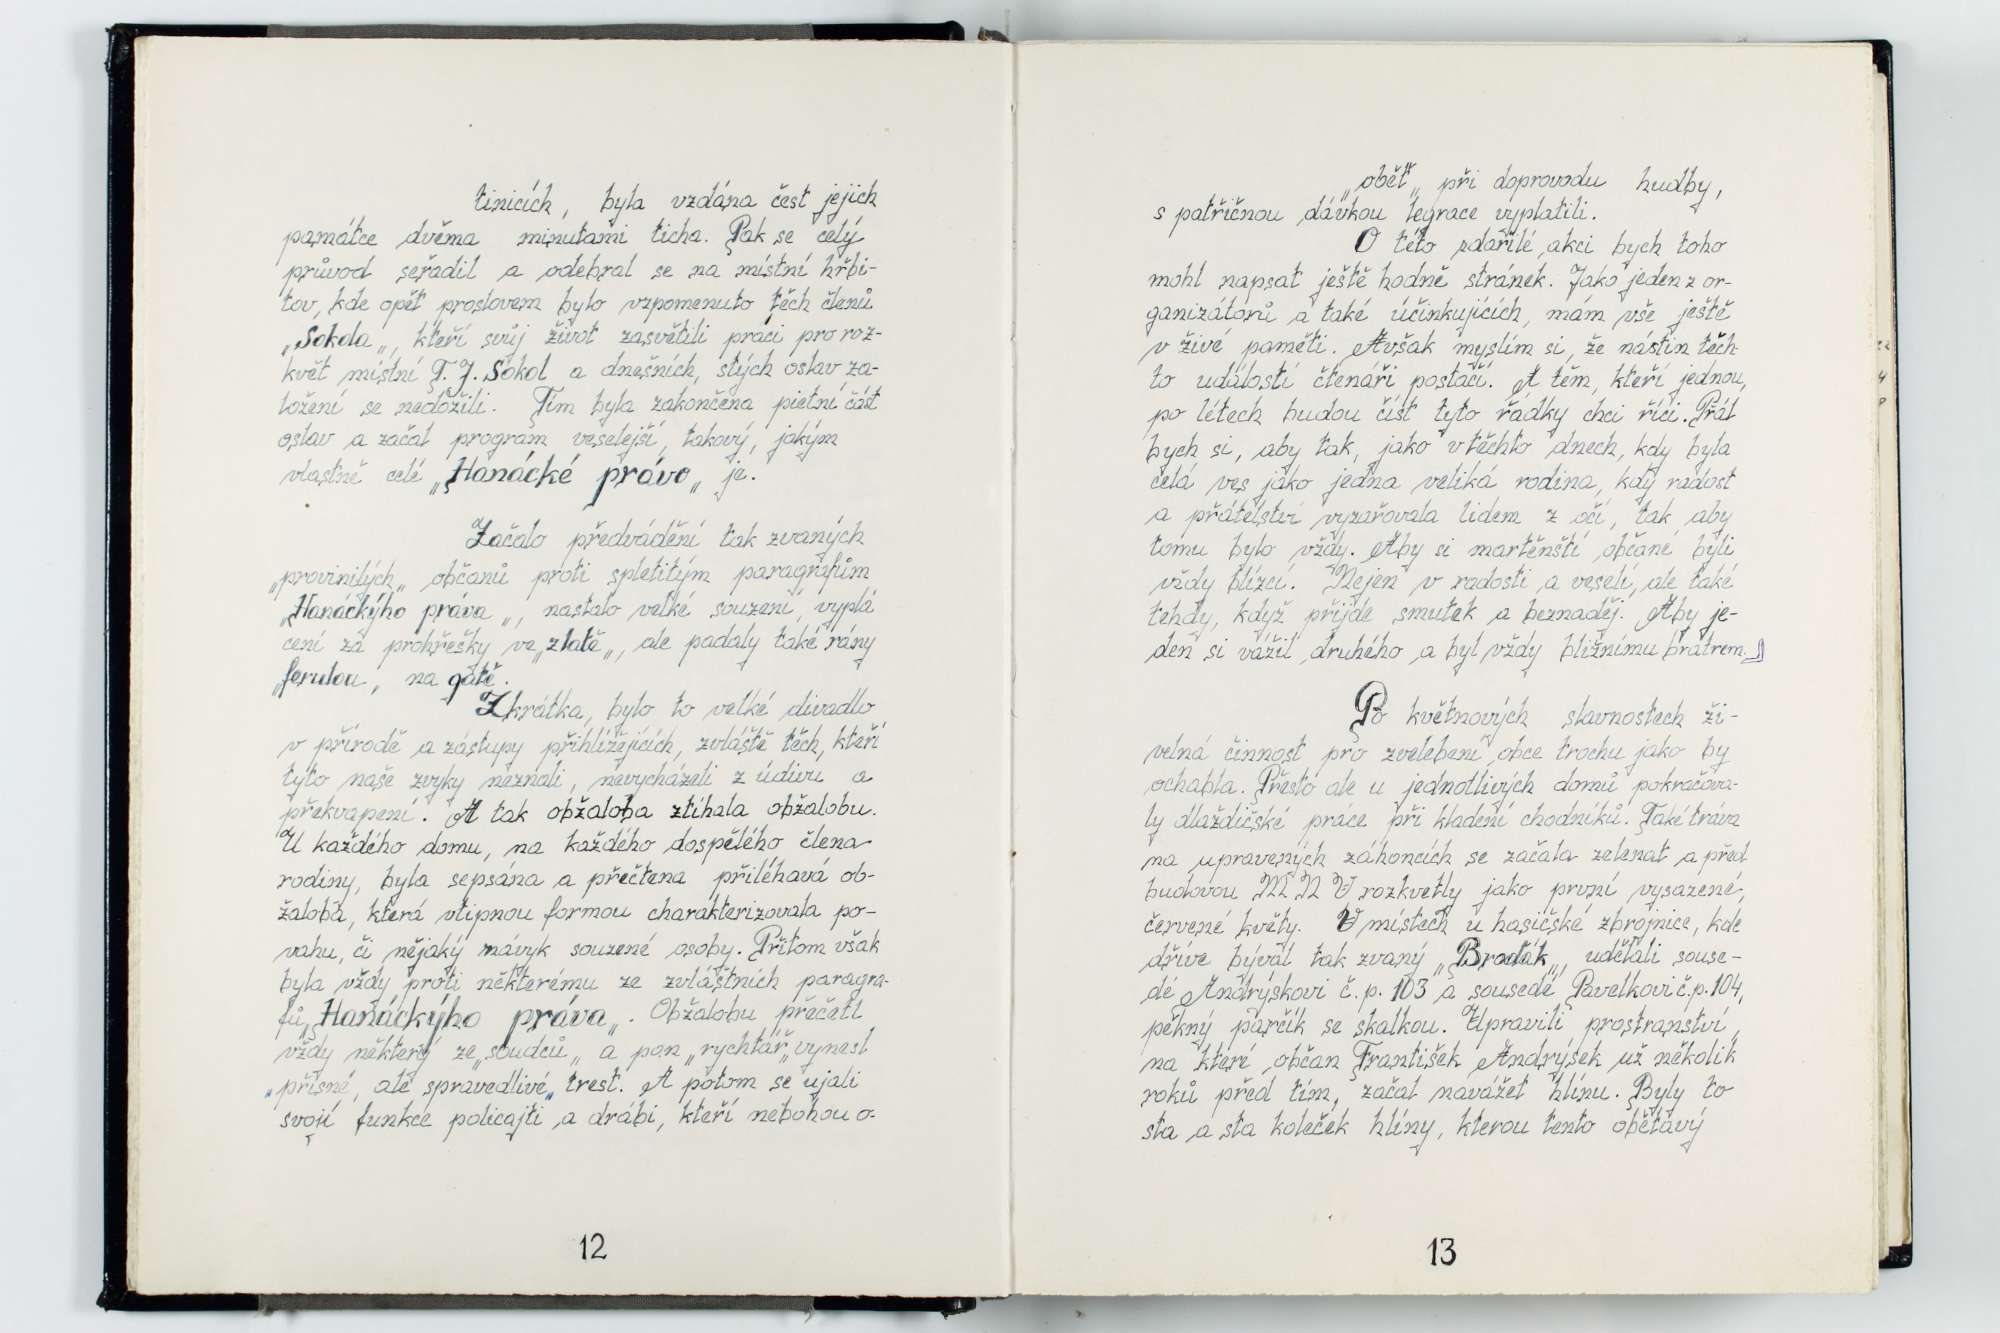 tinicích, byla vzdána čest jejich
památce dvěma minutami ticha. Pak se celý
průvod seřadil a odebral se na místní hřbi-
tov, kde opět proslovem bylo vzpomenuto těch členů
„Sokola„, kteří svůj život zasvětili práci pro roz-
květ místní T. J. Sokol a dnešních, stých oslav za-
ložení se nedožili. Tím byla zakončena pietní část
oslav a začal program veselejší, takový, jakým
vlastně celé „Hanácké právo„ je.
Začalo předvádění tak zvaných
„provinilých„ občanů proti spletitým paragrafům
„Hanáckýho práva„, nastalo velké souzení, vyplá
cení za prohřešky ve „zlatě„, ale padaly také rány
„ferulou„ na gatě.
Zkrátka, bylo to velké divadlo
v přírodě a zástupy přihlížejících, zvláště těch, kteří
tyto naše zvyky neznali, nevycházeli z údivu a
překvapení. A tak obžaloba ztíhala obžalobu.
U každého domu, na každého dospělého člena
rodiny, byla sepsána a přečtena přiléhavá ob-
žaloba, která vtipnou formou charakterizovala po-
vahu, či nějaký návyk souzené osoby. Přitom však
byla vždy proti některému ze zvláštních paragra-
fů „Hanáckýho práva„. Obžalobu přečetl
vždy některý ze „soudců„ a pan „rychtář„ vynesl
„přísné, ale spravedlivé„ trest. A potom se ujali
svojí funkce policajti a drábi, kteří nebohou o-
12
„oběť„ při doprovodu hudby,
s patřičnou dávkou legrace vyplatili.
O této zdařilé akci bych toho
mohl napsat ještě hodně stránek. Jako jeden z or-
ganizátorů a také účinkujících, mám vše ještě
v živé paměti. Avšak myslím si, že nástin těch-
to událostí čtenáři postačí. A těm, kteří jednou,
po létech budou číst tyto řádky chci říci. Přál
bych si, aby tak, jako v těchto dnech, kdy byla
celá ves jako jedna veliká rodina, kdy radost
a přátelství vyzařovala lidem z očí, tak aby
tomu bylo vždy. Aby si martěnští občané byli
vždy blízcí. Nejen v radosti a veselí, ale také
tehdy, když přijde smutek a beznaděj. Aby je-
den si vážil druhého a byl vždy bližnímu bratrem.
Po květnových slavnostech ži-
velná činnost pro zvelebení obce trochu jako by
ochabla. Přesto ale u jednotlivých domů pokračova-
ly dlaždičské práce při kladení chodníků. Také tráva
na upravených záhoncích se začala zelenat a před
budovou MNV rozkvetly jako první vysazené,
červené květy. V místech u hasičské zbrojnice, kde
dříve býval tak zvaný „Brodák„, udělali souse-
dé Andrýskovi č.p. 103 a sousedé Pavelkovi č.p. 104,
pěkný parčík se skalkou. Upravili prostranství,
na které občan František Andrýsek už několik
roků před tím, začal navážet hlínu. Byly to
sta a sta koleček hlíny, kterou tento obětavý
13